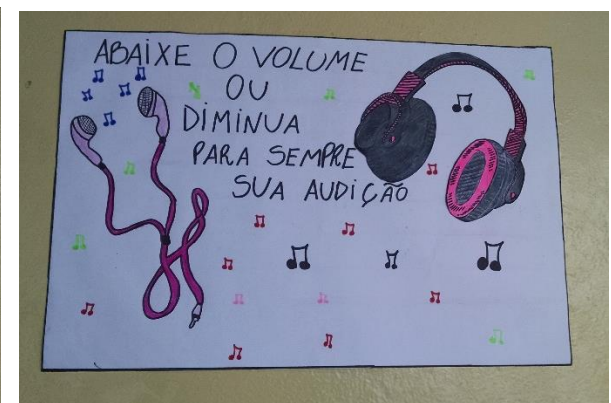 ABAIXE O VOLUME
OU
DIMINUA
PARA SEMPRE
SUA AUDIÇÃO